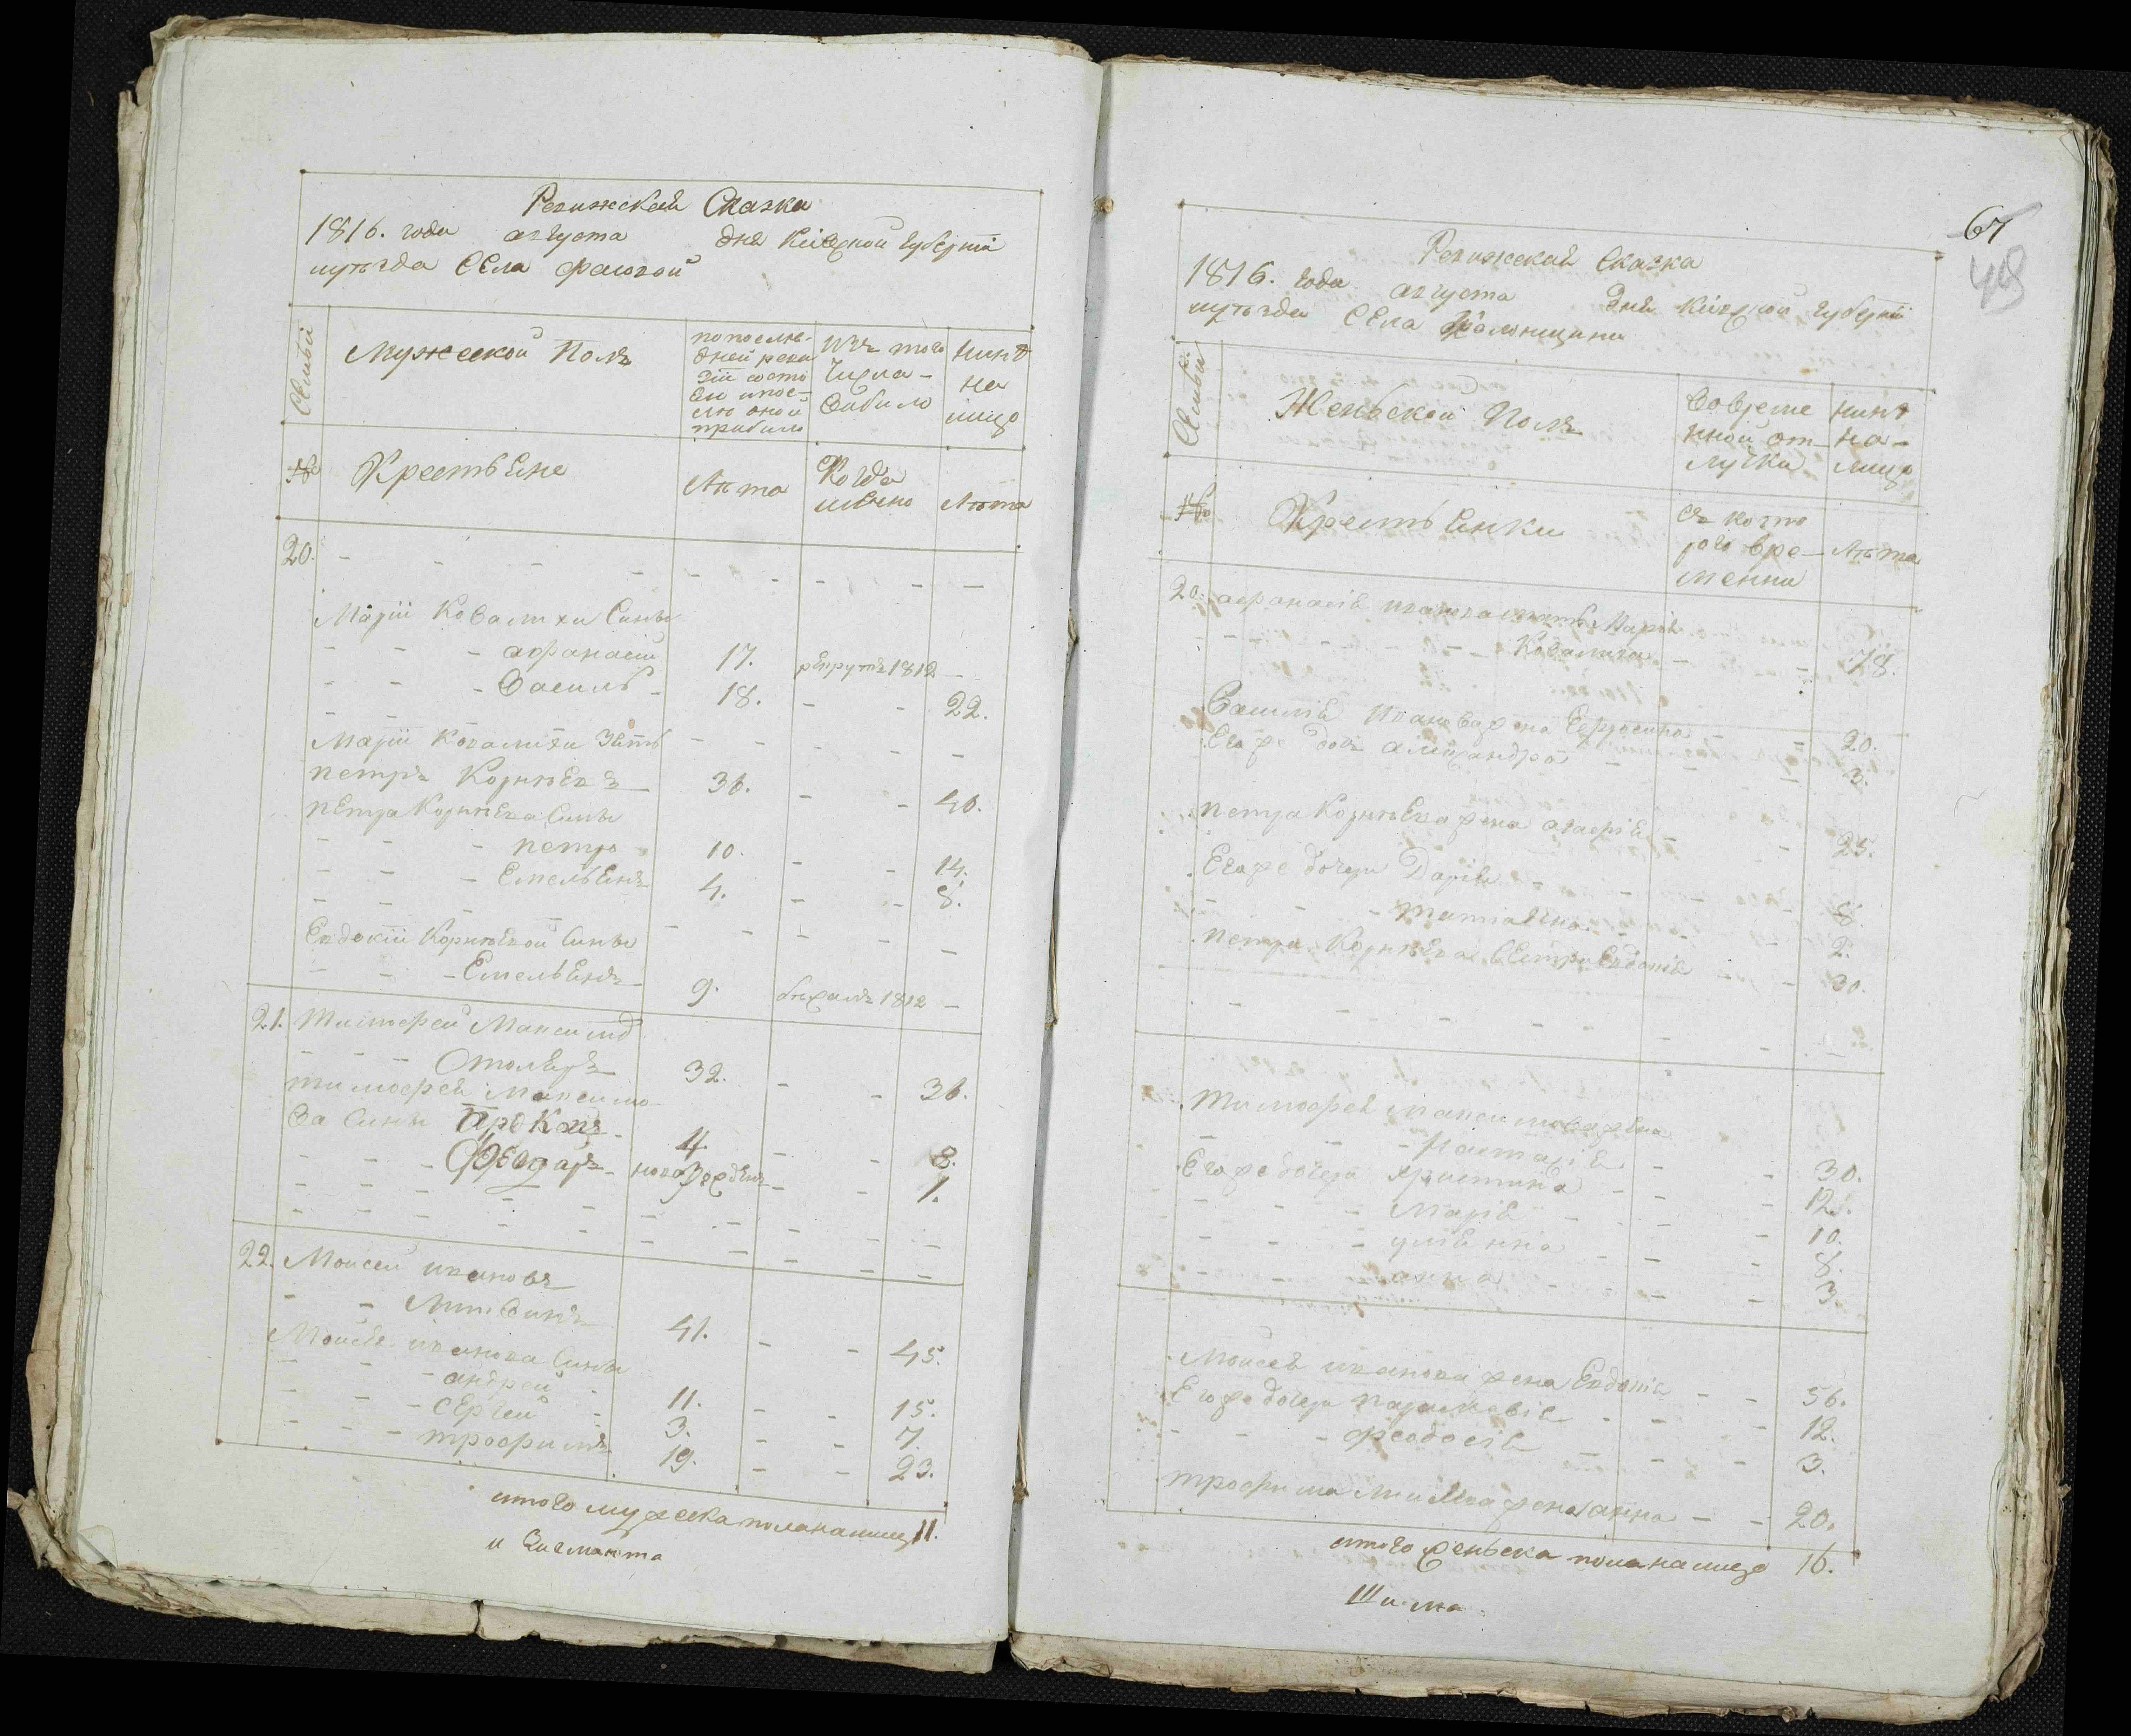 Ревижская Сказка
1816. года августа дня Кіевской губерніи
уѣзда Села
Семьи
Мужеской Полъ
по последней ревизіи состояли и после оной прибыло
Изъ того числа выбыло
Нинѣ на лицо
№
Крестьяне
Лѣта
Когда имянно
Лѣта
20.
Маріи Ковалихи Сины
афанасій 17. рекрутъ 1812
Василь 18. 22.
Маріи Ковалихи Зять
петръ Корнѣевъ 36. 40.
петра Корнѣева Сины
петро 10. 14.
Емельянъ 4. 8.
Евдокіи Корнѣевой Сины
Емельянъ 9. 1812
21. Тимофей Максимов
Столяръ 32. 36.
тимофея Максимо
ва Сины Прокопъ 4. 8.
Феодоръ новорожденъ 1.
22. Моисей ивановъ
Литвинъ 41. 45.
Моисея иванова Сины
андрей 11. 15.
Сергей 3. 7.
трофимъ 19. 23.
итого мужеска пола налицо 11.
67
48
Ревижская Сказка
1816. года августа дня Кіевской губерніи
уѣзда Села
Семьи
Женьской Полъ
Во временной отлучки
Нинѣ на лицо
№
Крестьянки
Съ которого времени
Лѣта
20. афанасія иванова мать Марія
Ковалиха 78.
Василія Иванова жена Ефросина 20.
Его же дочь александра 3.
петра Корнѣева жена агафія 25.
Его же дочери Дарія 8.
татіяна 2.
петра Корнѣева сестра Евдокія 30.
Тимофея максимова жена
настасія 30.
Его же дочери христина 12.
Марія 10.
уліянна 8.
анна 3.
Моисея иванова жена Евдокія 56.
Его же дочери параскавія 12.
феодосія 3.
трофима жена анна 20.
итого женьска пола налицо 16.